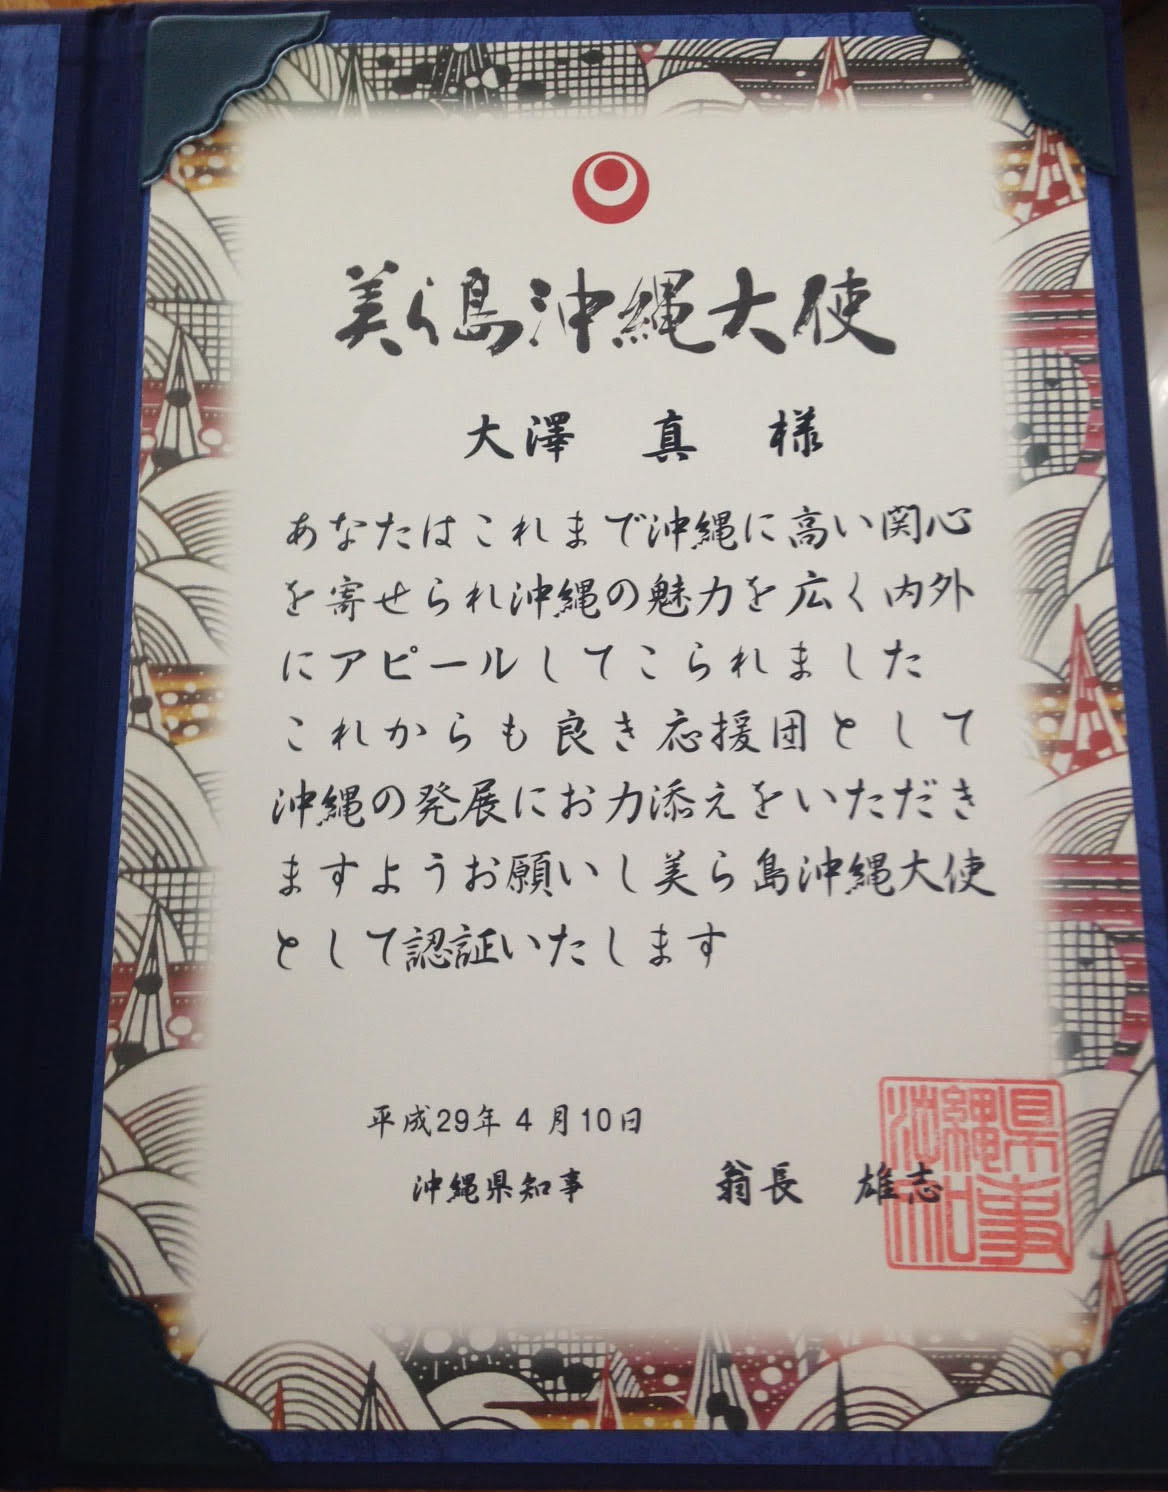 美ら島沖縄大使
大澤　真　様
あなたはこれまで沖縄に高い関心
を寄せられ沖縄の魅力を広く内外
にアピールしてこられました
これからも良き応援団として
沖縄の発展にお力添えをいただき
ますようお願いし美ら島沖縄大使
として認証いたします
平成29年4月10日
沖縄県知事　翁長　雄志
沖縄県知事